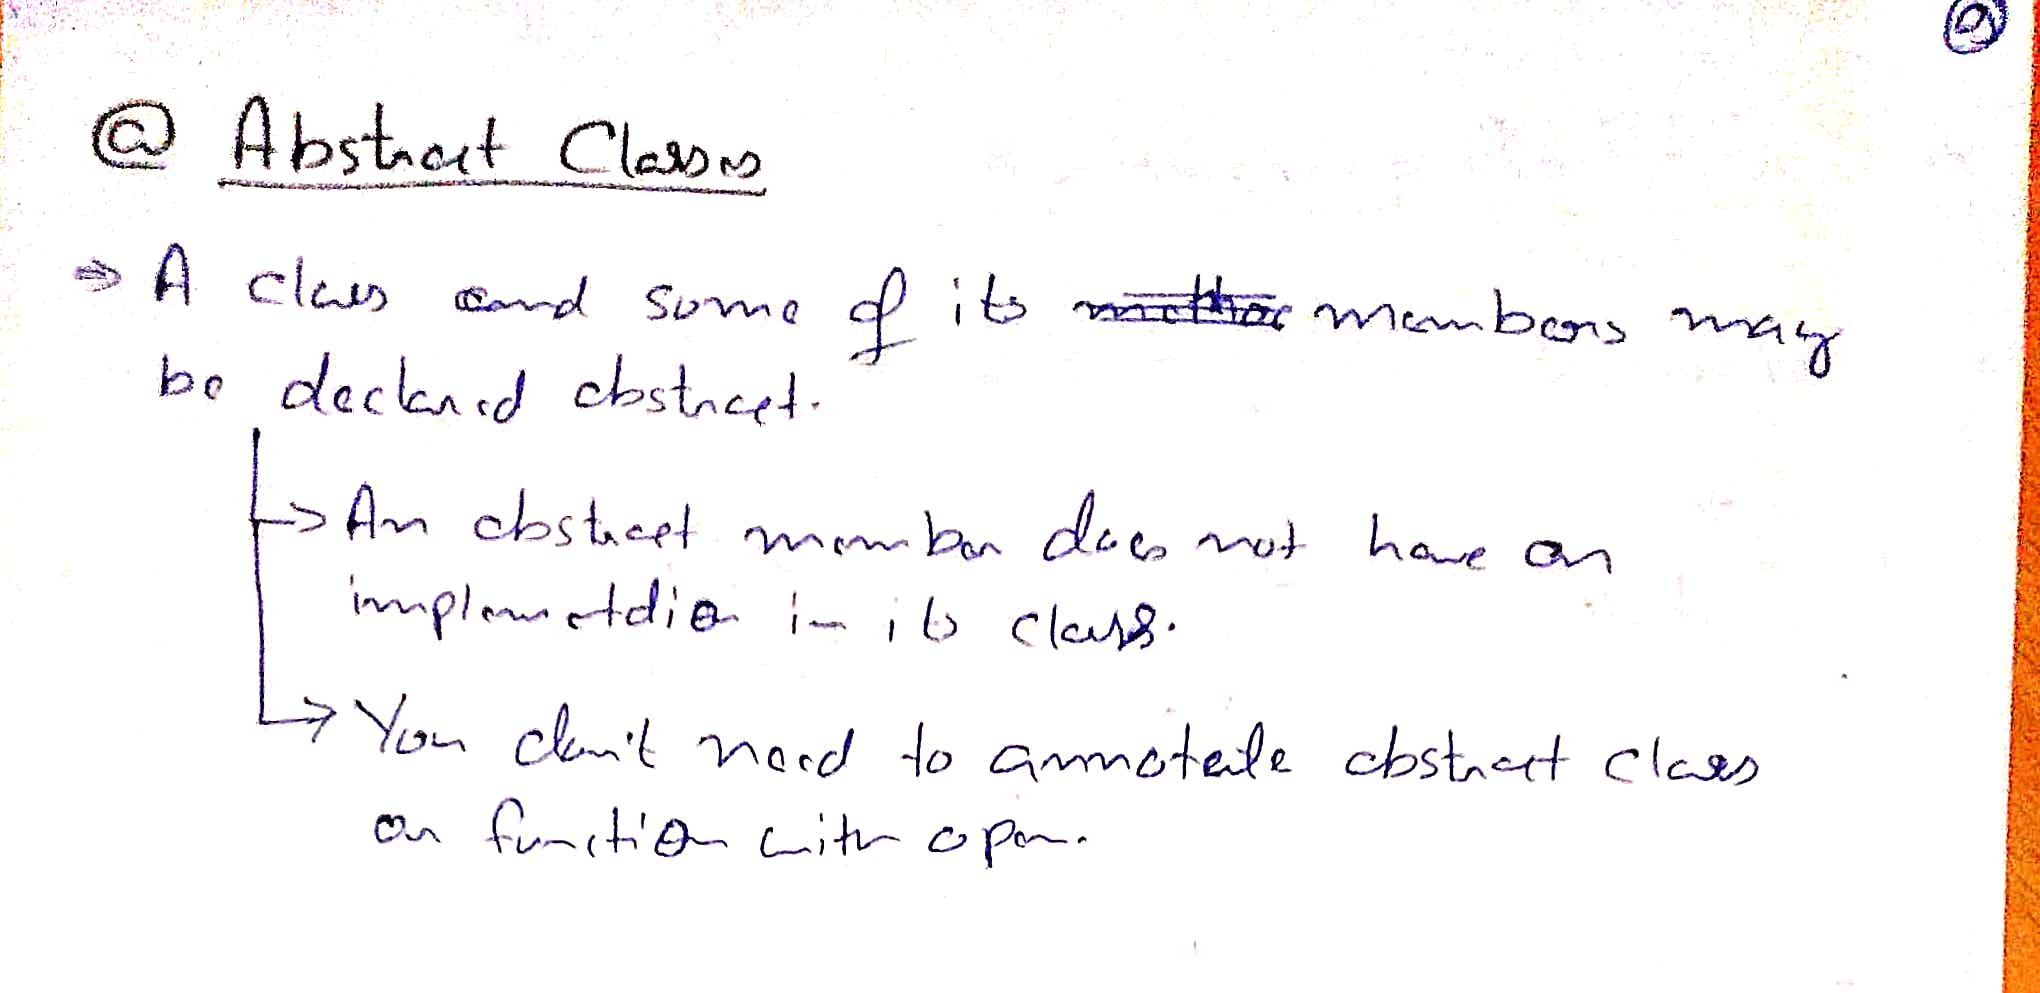 @ Abstract Classes
⇒ A class and some of its members may
be declared abstract.
→ An abstract member does not have an
implementation in its class.
→ You don't need to annotate abstract class
or function with open.